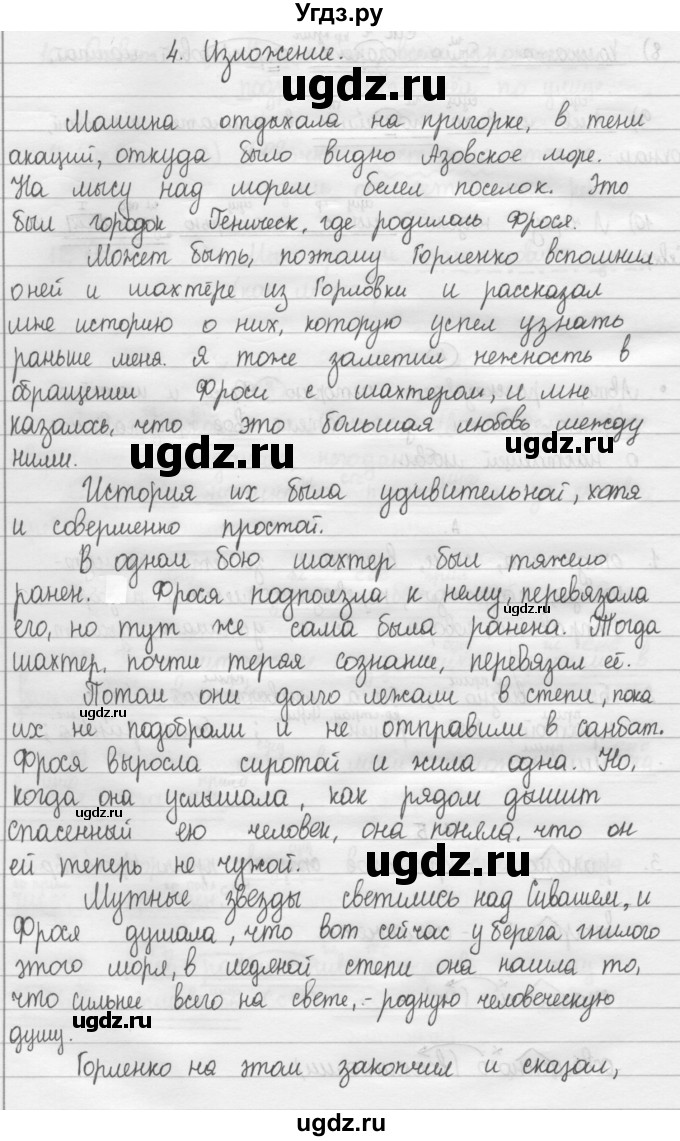 Угдз.ру
4. Изложение.
ugdz.ru
Машина отдыхала на пригорке, в тени
акаций, откуда было видно Азовское море.
На мысу над морем белел поселок. Это
был городок Геническ, где родилась Фрося.
ugdz.ru
Может быть, поэтому Горленко вспомнил
о ней и шахтёре из Горловки и рассказал
мне историю о них, которую успел узнать
раньше меня. Я тоже заметил нежность в
обращении Фроси с шахтером, и мне
казалось, что это большая любовь между
ними.
ugdz.ru
ugdz.ru
История их была удивительной, хотя
и совершенно простой.
В одном бою шахтер был тяжело
ранен. Фрося подползла к нему, перевязала
его, но тут же сама была ранена. Тогда
шахтер, почти теряя сознание, перевязал её.
ugdz.ru
Потом они долго лежали в степи, пока
их не подобрали и не отправили в санбат.
ugdz.ru
Фрося выросла сиротой и жила одна. Но,
когда она услышала, как рядом дышит
спасенный ею человек, она поняла, что он
ей теперь не чужой.
ugdz.ru
Мутные звезды светились над Сивашем, и
Фрося думала, что вот сейчас у берега гнилого
этого моря, в ледяной степи она нашла то,
что сильнее всего на свете, - родную человеческую
душу.
ugdz.ru
Горленко на этом закончил и сказал,
ugdz.ru